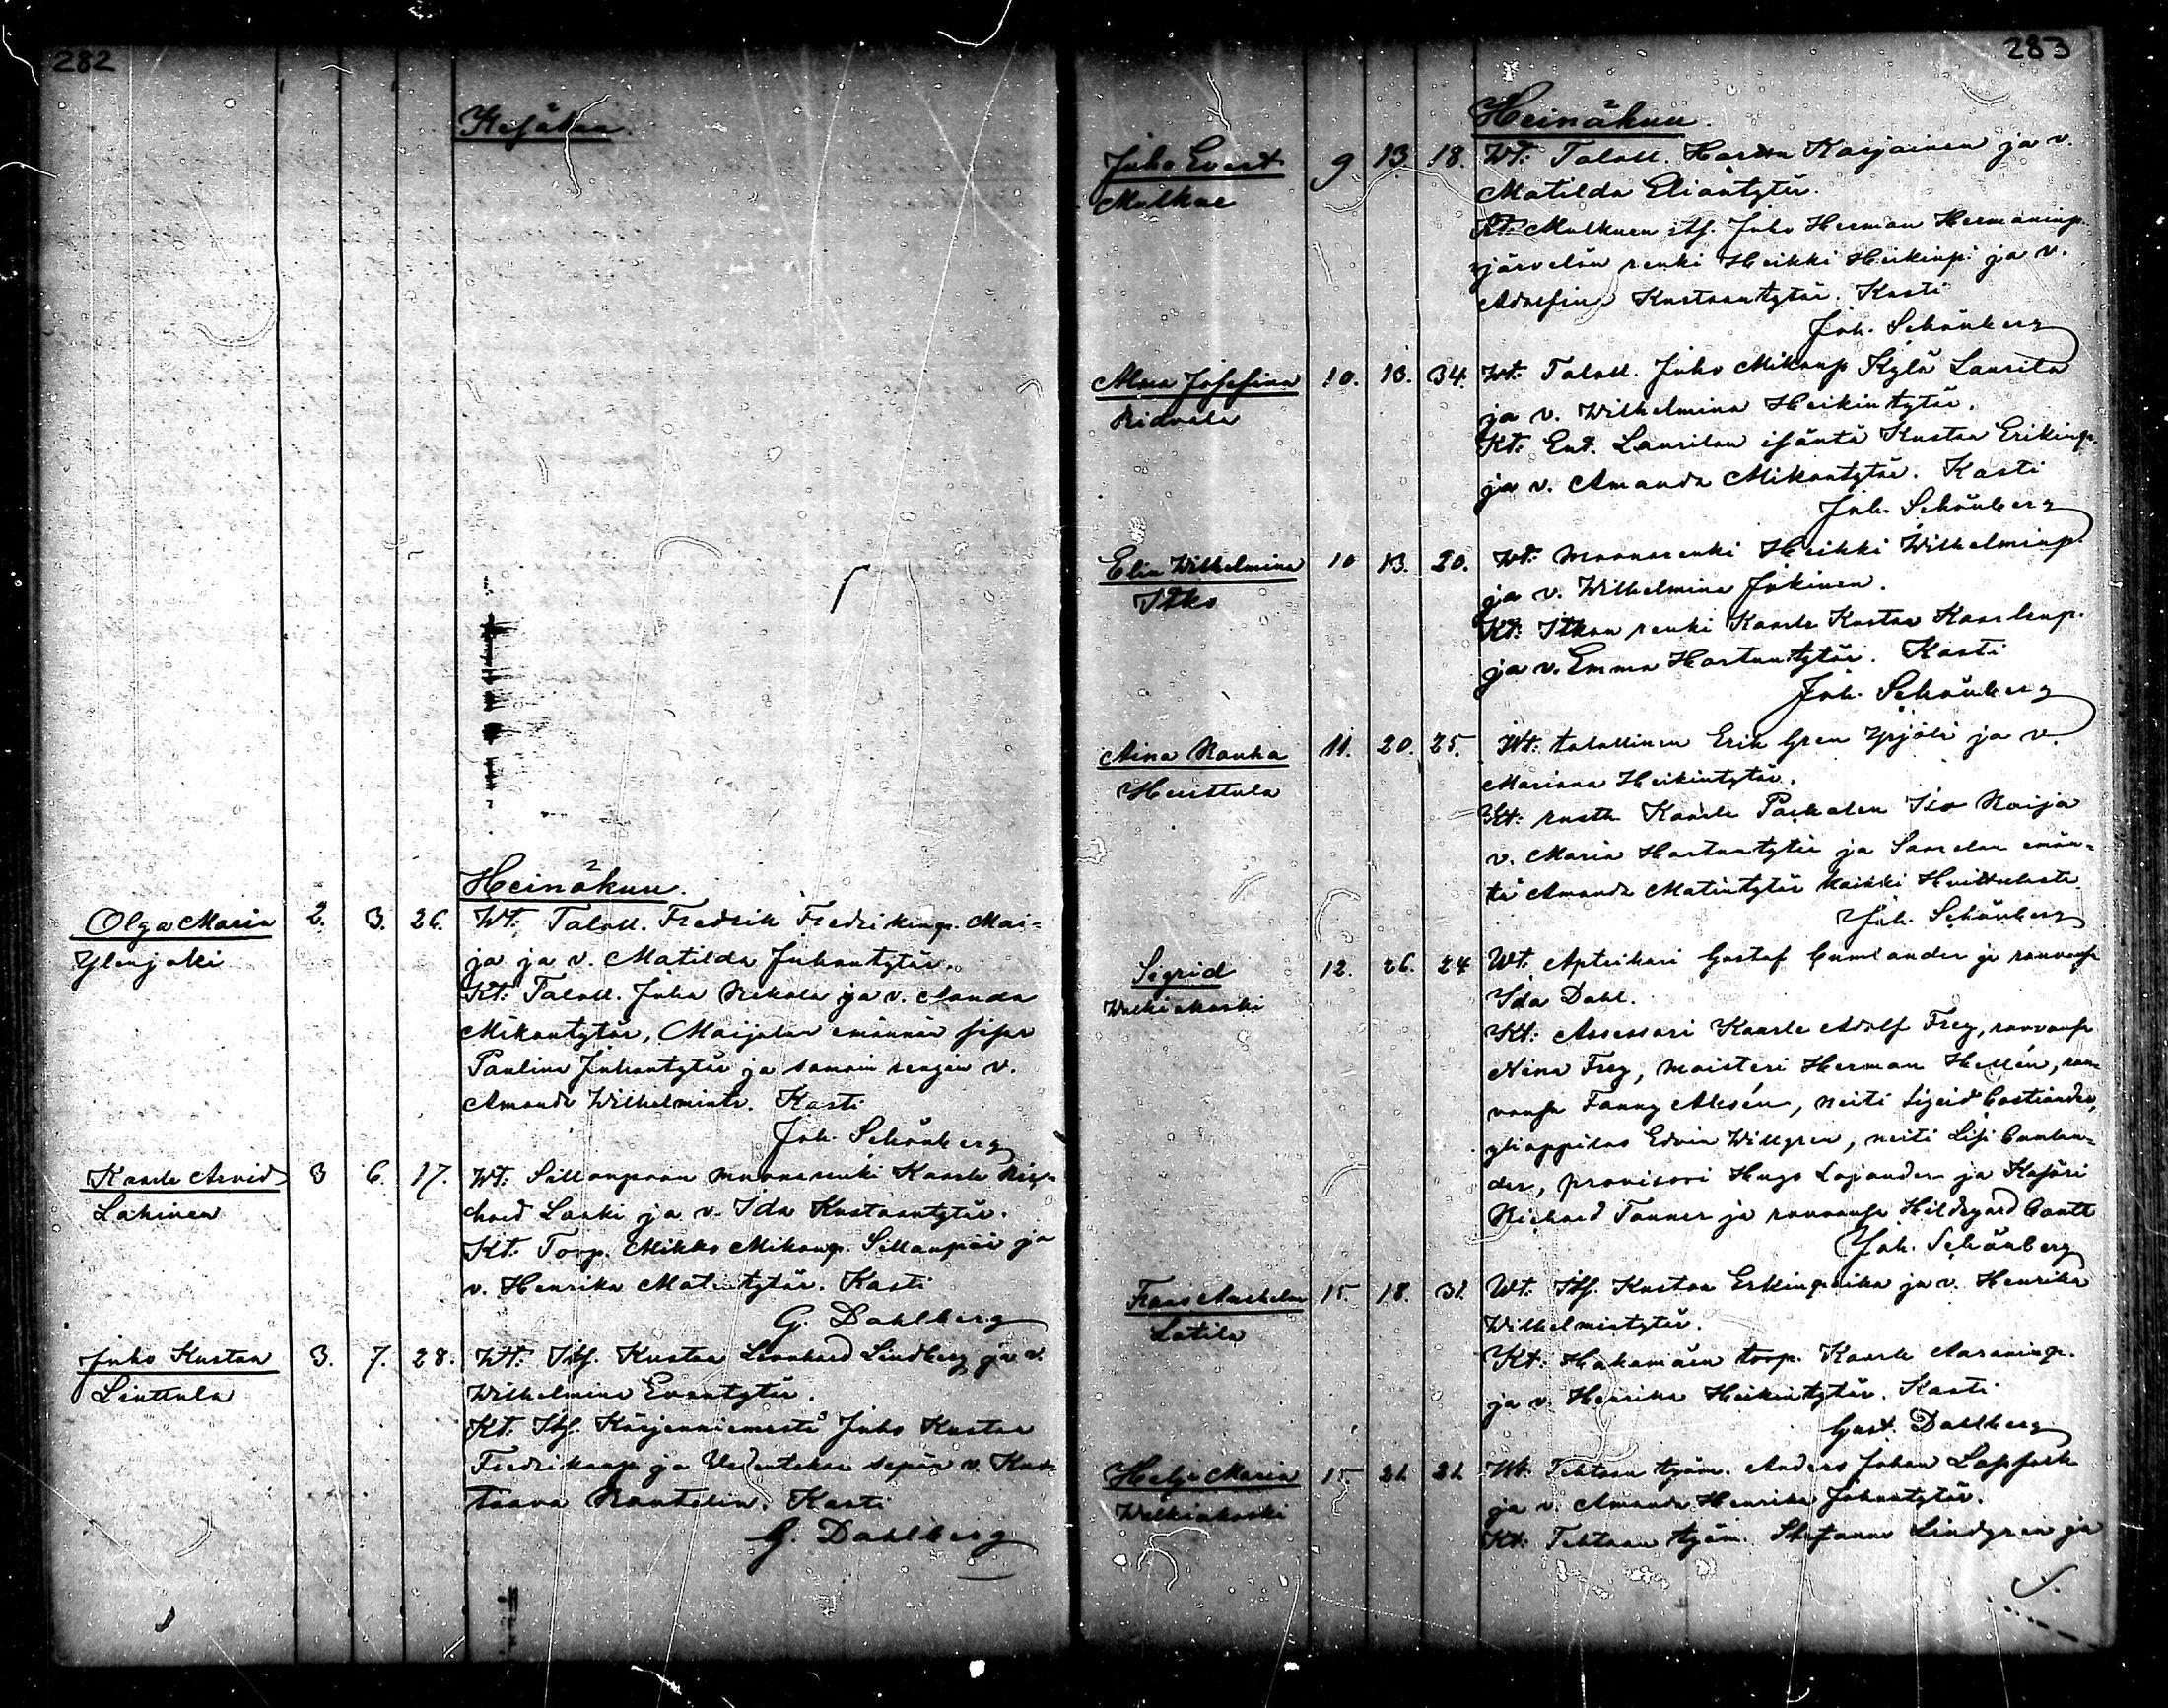 282
Kesäkuu.
Heinäkuu.
Olga Maria 2. 3. 26. Wt. Taloll. Fredrik Fredrikinp. Mai-
Ylenjoki ja ja v. Matilda Juhantytär.
Kt: Taloll. Juha Nekala ja v. Aanda
Mikontytär, Maijalan emännän sisar
Paulina Juhantytär ja samoin rengin v.
Amanda Wilhelmintr. Kasti
Joh. Schönberg
Kaarle Arvid 3 6. 17. Wt: Sillanpään muonarenki Kaarle Rig-
Lahinen hard Laaki ja v. Ida Kustaantytär.
Kt: Torp. Mikko Mikonp. Sillanpää ja
v. Henrika Matintytär. Kasti
G. Dahlberg
Juho Kustaa 3. 7. 28. Wt: Itf. Kustaa Leonhard Lindberg ja v.
Liuttula Wilhelmina Evantytär.
Kt. Itf. Kärjenniemestä Juho Kustaa
Fredrikinp. ja sepän v. Kus-
taava Rantelin. Kasti
G. Dahlberg
283
Heinäkuu.
Juho Evert 9 13. 18. Wt: Taloll. Karjainen ja v.
Mulkue Matilda Eliantytär.
Kt: Mulkuen itf. Juho Herman Hermaninp.
järvelän renki Heikki Heikinp. ja v.
Adolfina Kustaantytär. Kasti
Joh. Schönberg
Alma Josefina 10. 13. 34. Wt: Taloll. Juho Mikonp Kylä Laurila
Ridvala ja v. Wilhelmina Heikintytär.
Kt: Ent. Laurilan isäntä Kustaa Erikinp.
ja v. Amanda Mikontytär. Kasti
Joh. Schönberg
Elin Wilhelmina 10 13. 20. Wt: Muonarenki Heikki Wilhelminp.
Itko ja v. Wilhelmina Jokinen.
Kt: Itkon renki Kaarle Kustaa Kaarlenp.
ja v. Emma Hartuntytär. Kasti
Joh. Schönberg
Aina Rauha 11. 20. 25. Wt: talollinen Erik Gren Yrjölä ja v.
Huittula Mariana Heikintytär.
Kt: rusth. Kaarle Packalen Iso Raija
v. Maria Hartuntytär ja Saarelan emän-
tä Amanda Matintytär kaikki Huittulasta.
Joh. Schönberg
Sigrid 12. 26. 24 Wt. Apteikari Gustaf Cumlander ja rouvansa
Walkiakoski Ida Dahl.
Kt: Assessori Kaarle Adolf Frey, rouvansa
Nina Frey, maisteri Herman Hellén, rou-
vansa Fanny Alsén, neiti Sigrid Costiander,
ylioppilas Edvin Willgren, neiti Lisi Cumlan-
der, provisori Hugo Lojander ja
Richard Tanner ja rouvansa Hildegard
Joh. Schönberg
Frans Anshelm 15. 18. 31. Wt. Itf. Kustaa Erkinpoika ja v. Henrika
Lotila Wilhelmintytär.
Kt: Hakamäen torp. Kaarle Aaroninp.
ja v. Henrika Heikintytär. Kasti
Gust. Dahlberg
Helga Maria 15. 21. 21. Wt. Tehtaan työm. Anders Johan Lappfors
Walkiakoski ja v. Amanda Henrika Johantytär.
Kt: Tehtaan työm. Stefanus Lindgren ja